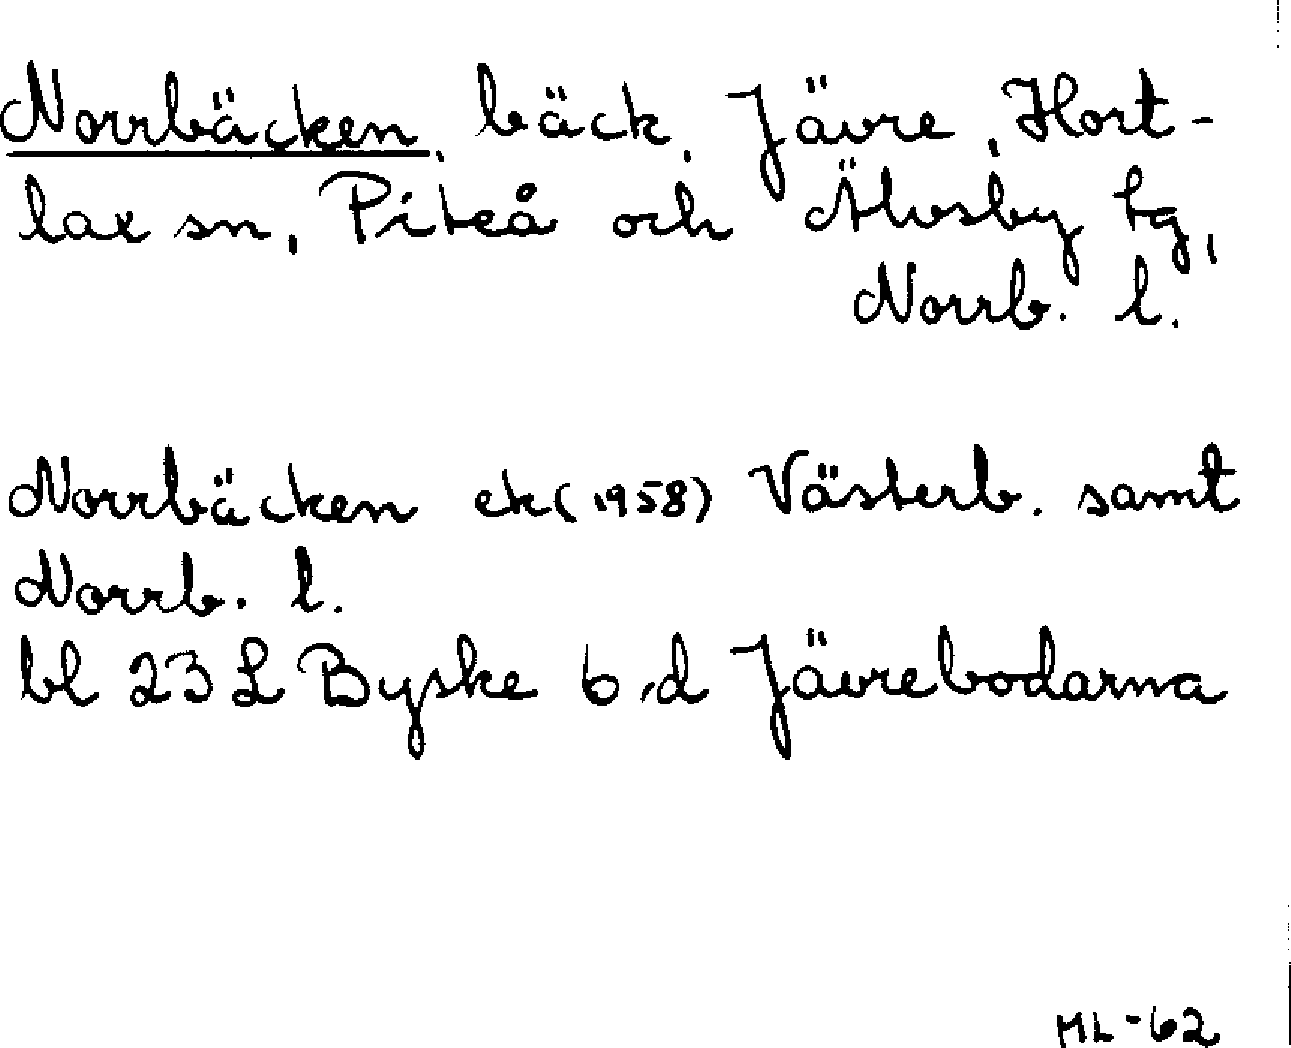 Norrbäcken, bäck, Jävre, Hort-
lax sn, Piteå och Älvsby tg,
Norrb. l.
Norrbäcken ek (1958) Västerb. samt
Norrb. l.
bl 23 L Byske b,d Jävrebodarna
ML-62